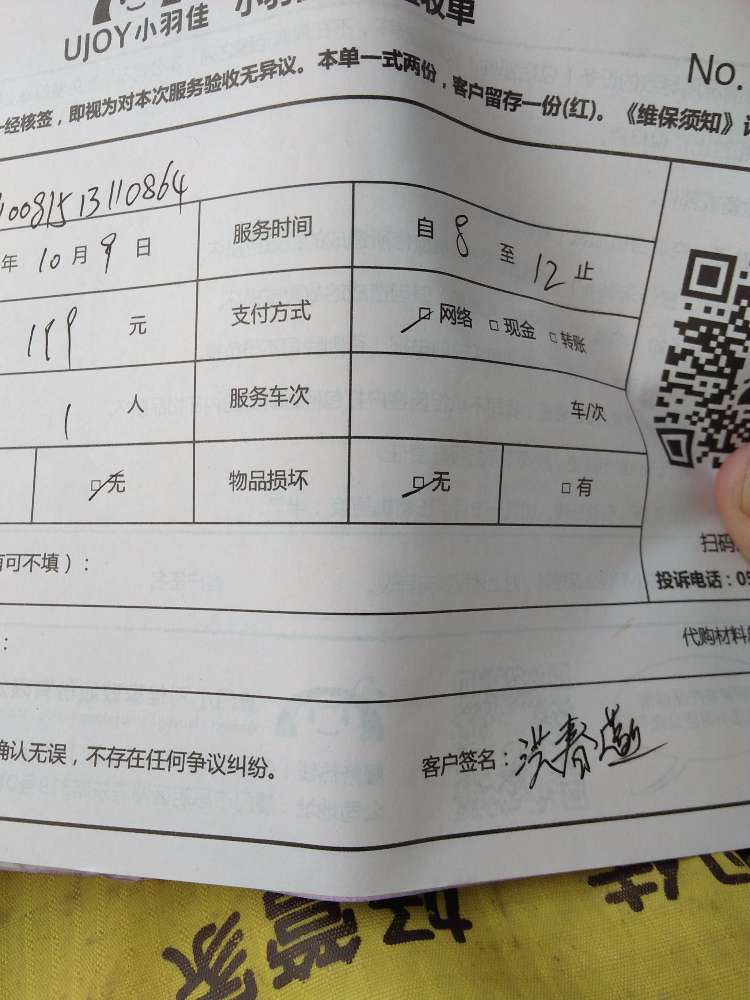 UJOY小羽佳
收单
No.
一经核签，即视为对本次服务验收无异议。本单一式两份，客户留存一份(红)。《维保须知》
100815 13110864
年 10 月 9 日 服务时间 自 8 至 12 止
199 元 支付方式 ☑网络 □现金 □转账
1 人 服务车次 车/次
☑无 物品损坏 ☑无 □有
可不填）：
扫码
投诉电话：05
：
代购材料
确认无误，不存在任何争议纠纷。 客户签名：洪春
好管家